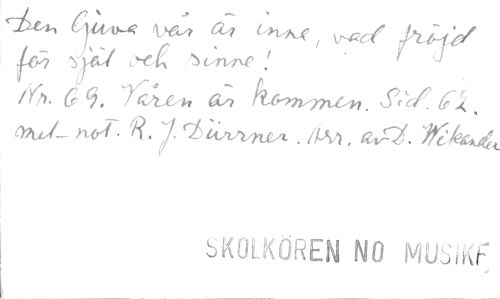 Den ljuva vår är inne, vad fröjd
för själ och sinne!
Nr. 69. Våren är kommen. Sid. 62.
mel-not. R. J. Dürrner. Arr. av D. Wikander
SKOLKÖREN NO MUSIKE